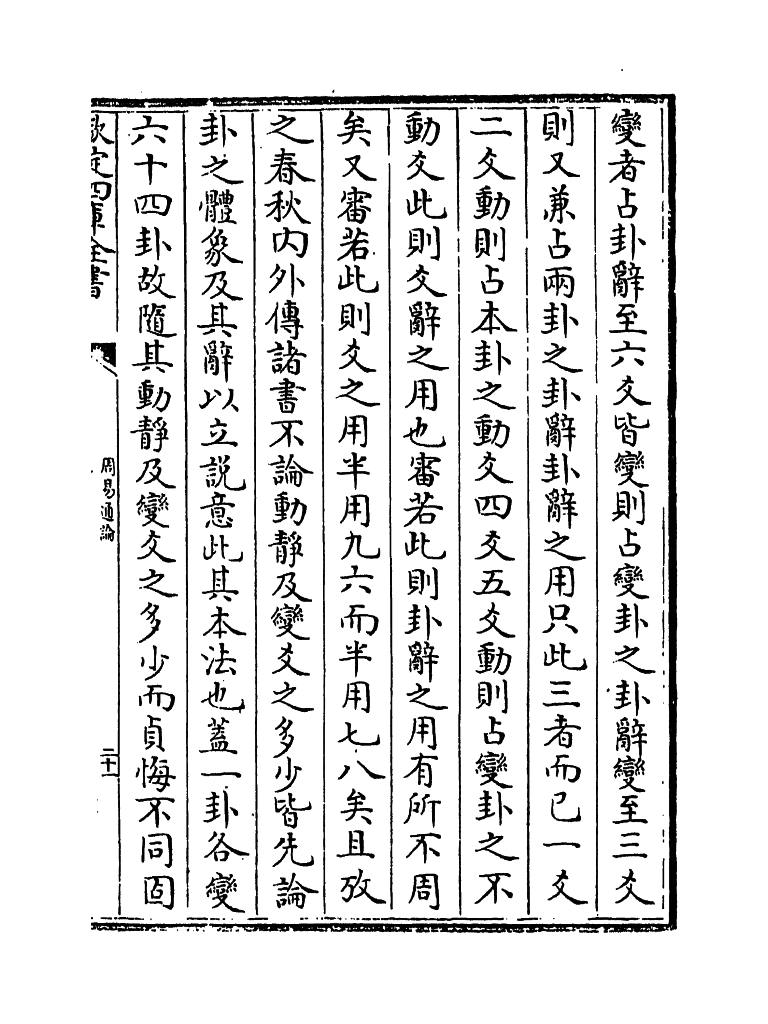 變者占卦辭至六爻皆變則占變卦之卦辭變至三爻
則又兼占兩卦之卦辭卦辭之用只此三者而已一爻
二爻動則占本卦之動爻四爻五爻動則占變卦之不
動爻此則爻辭之用也審若此則卦辭之用有所不周
矣又審若此則爻之用半用九六而半用七八矣且攷
之春秋内外傳諸書不論動靜及變爻之多少皆先論
卦之體象及其辭以立説意此其本法也蓋一卦各變
六十四卦故隨其動靜及變爻之多少而貞悔不同固
欽定四庫全書
周易通論
二十一